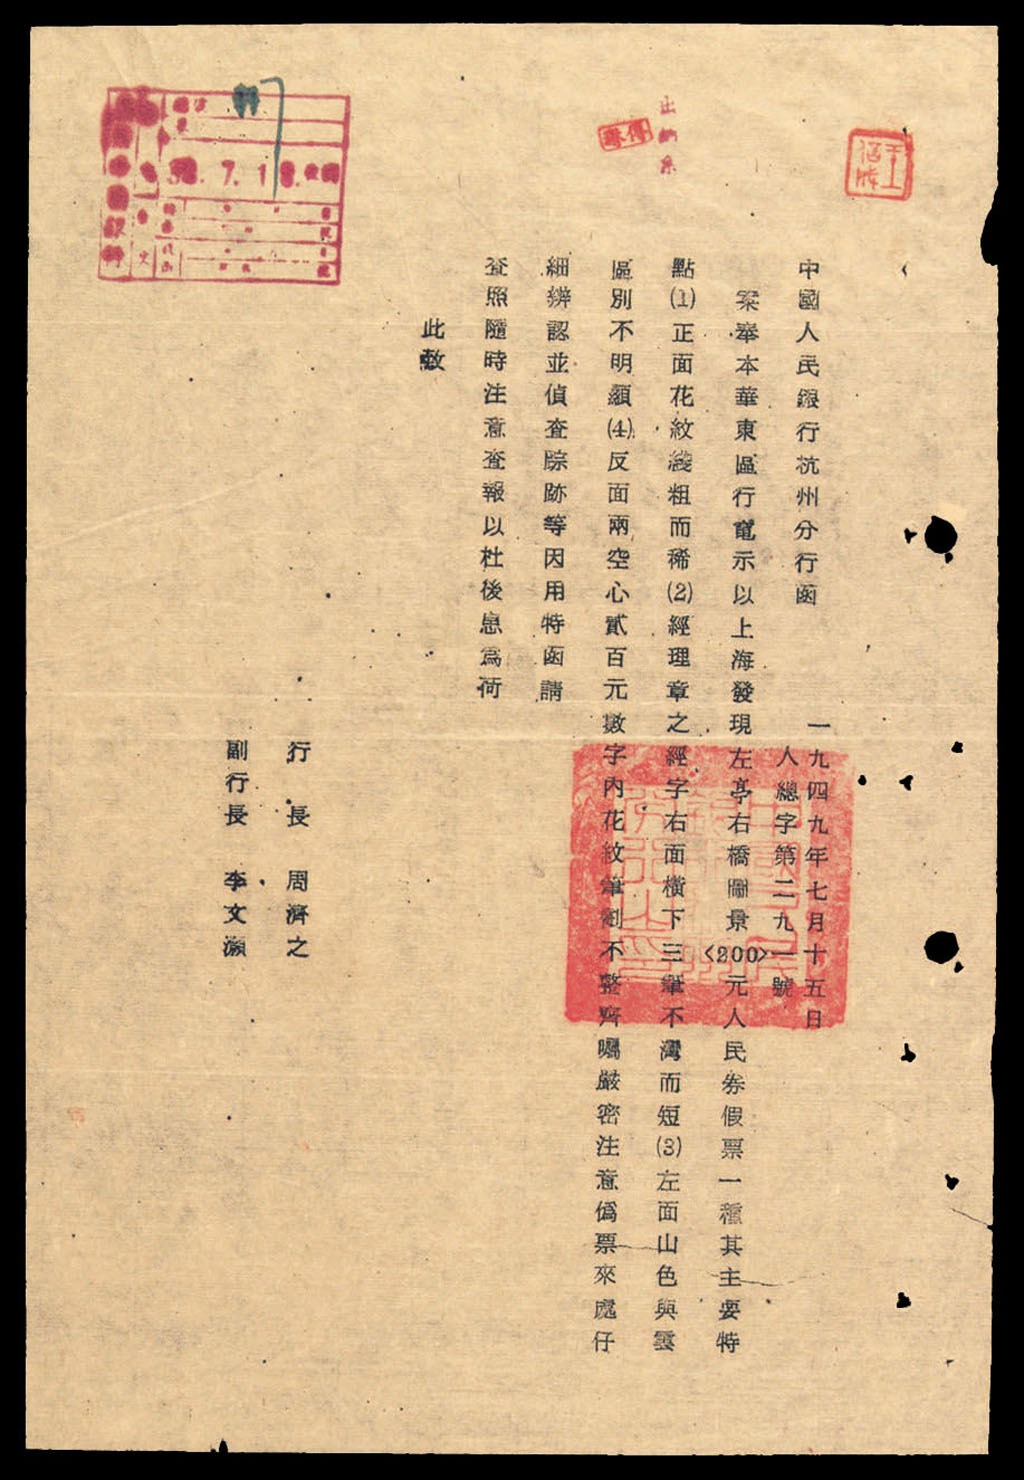 一九四九年七月十五日
中國人民銀行杭州分行函
人總字第二九一號
案奉本華東區行電示以上海發現左亭右橋圖景<200>元人民券假票一種其主要特
點(1)正面花紋綫粗而稀(2)經理章之經字右面橫下三筆不灣而短(3)左面山色與雲
區別不明顯(4)反面兩空心貳百元數字內花紋筆劃不整齊囑嚴密注意偽票來處仔
細辨認並偵查踪跡等因用特函請
查照隨時注意查報以杜後患為荷
此致
行長 周濟之
副行長 李文灝
出納系
7.1